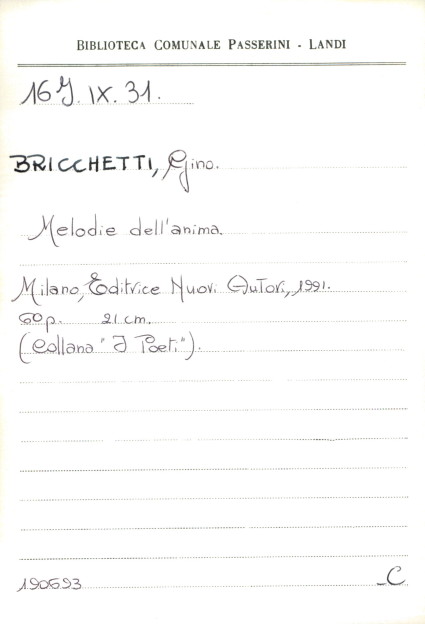 BIBLIOTECA COMUNALE PASSERINI - LANDI
16 Y. IX. 31.
BRICCHETTI, Gino.
Melodie dell'anima.
Milano, Editrice Nuovi Autori, 1991.
60 p. 21 cm.
(Collana "I Poeti").
190693 _C